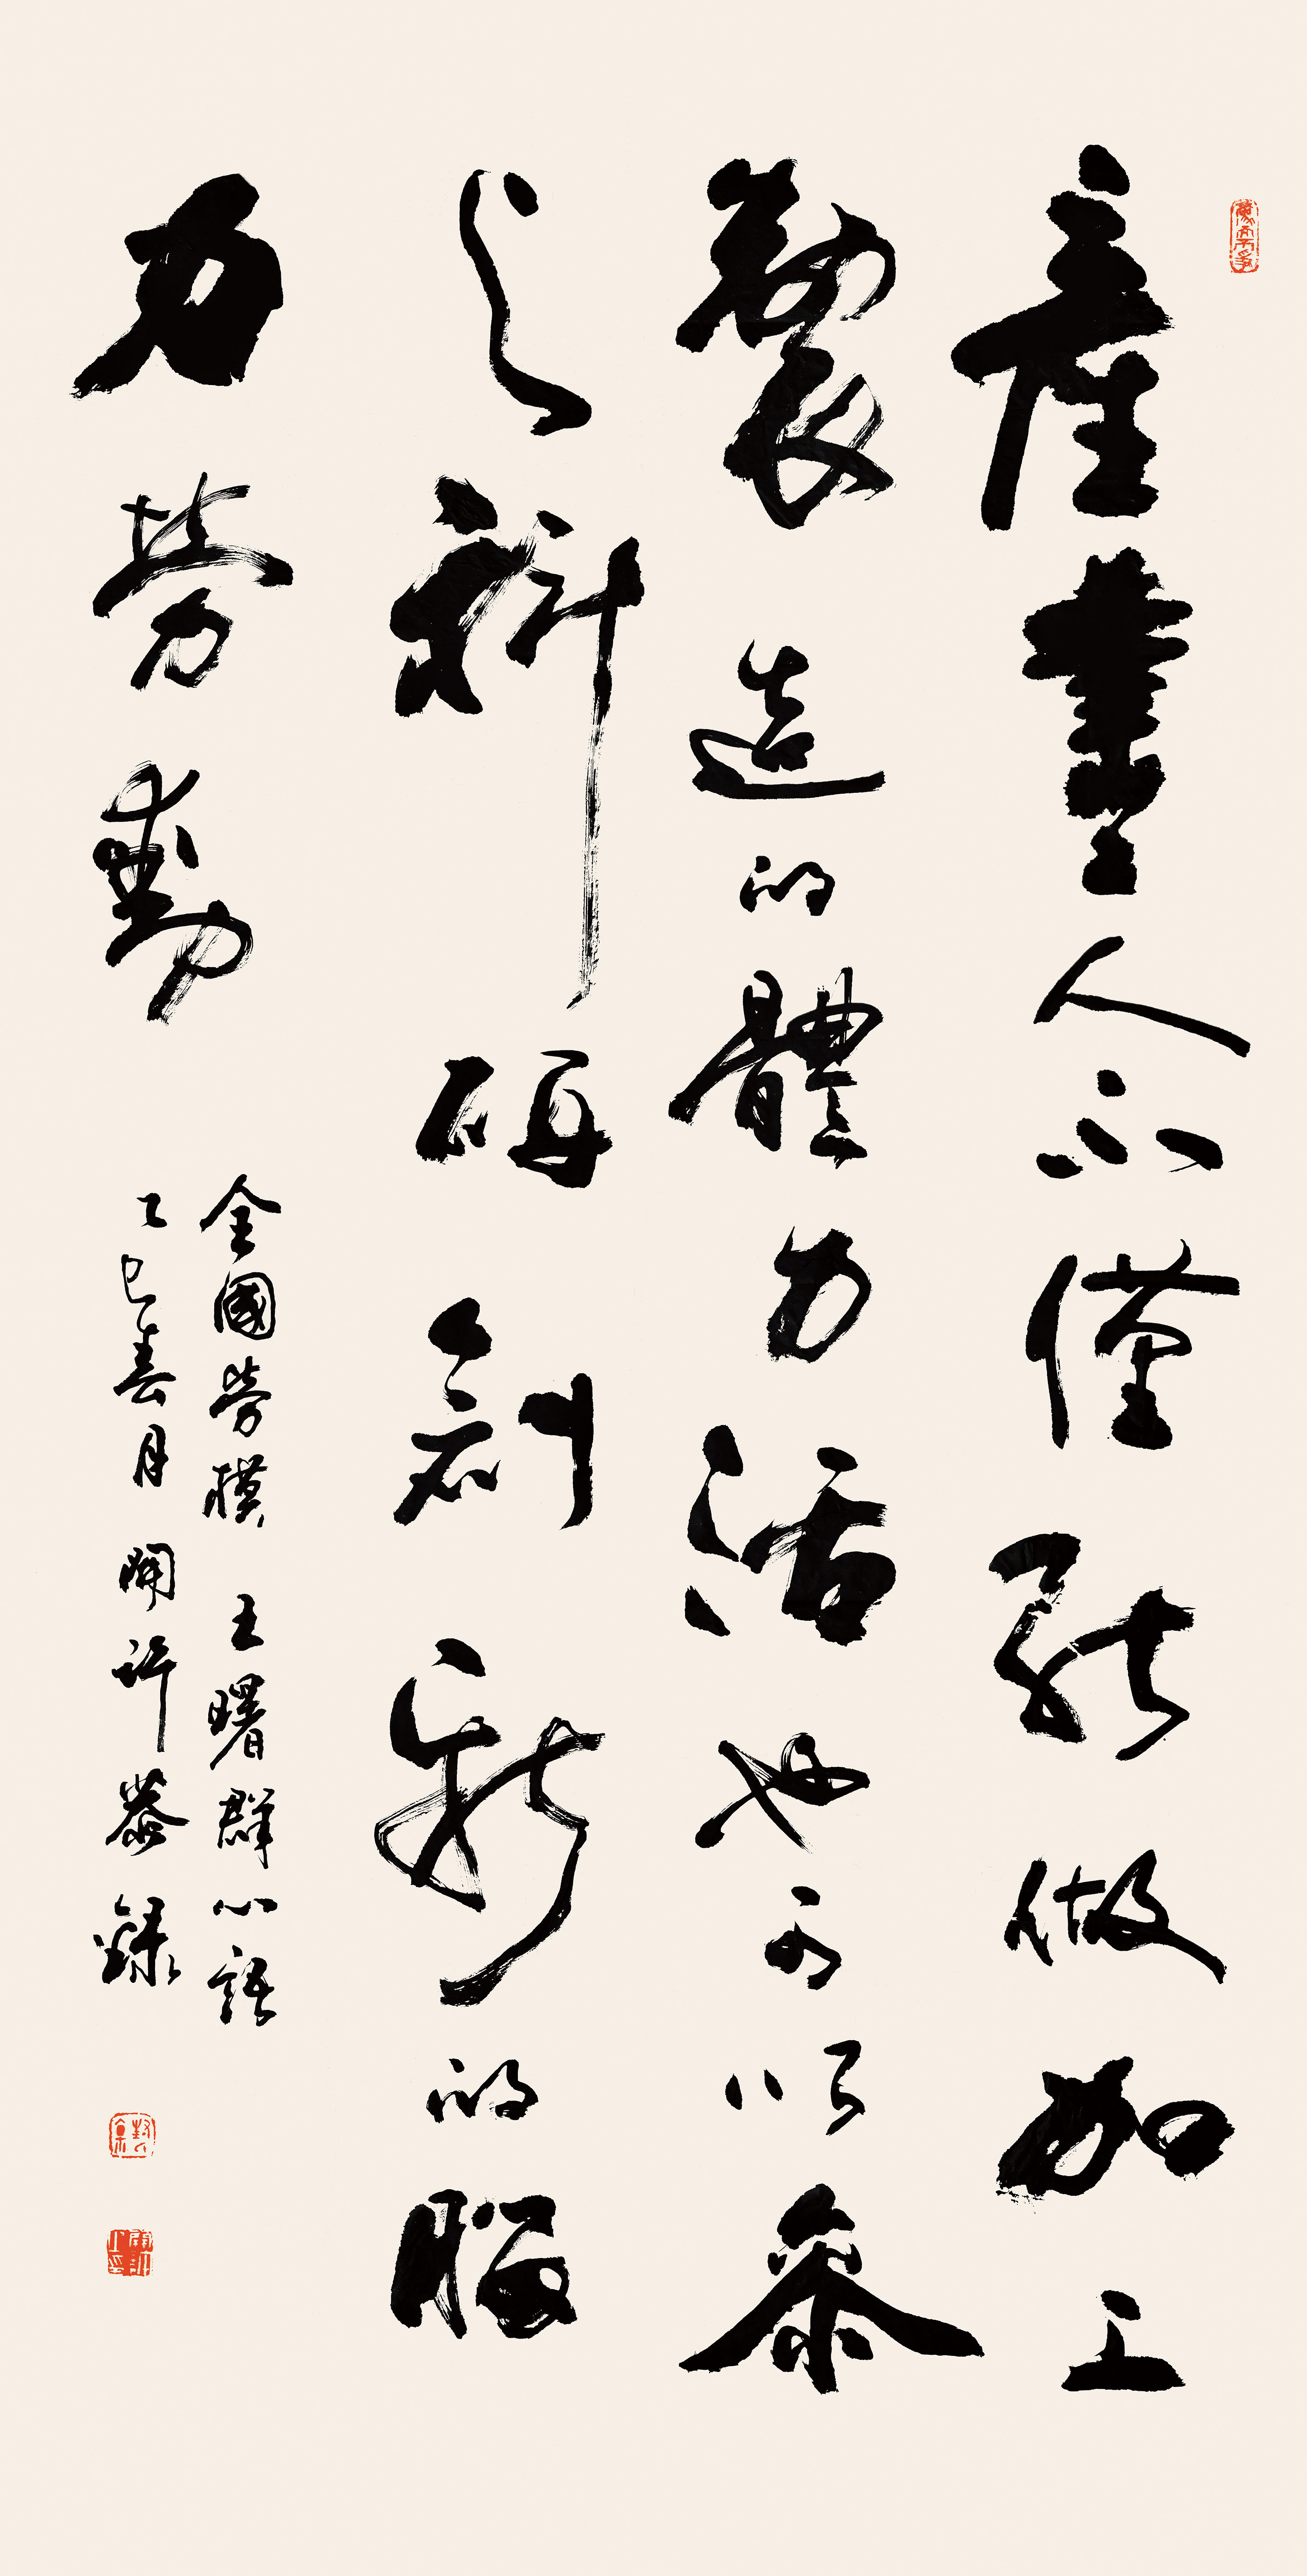 產業工人不僅能做加工
製造的體力活也可以參
與科研創新的腦
力勞動
全國勞模 王曙群心語
乙巳春月 開許恭錄